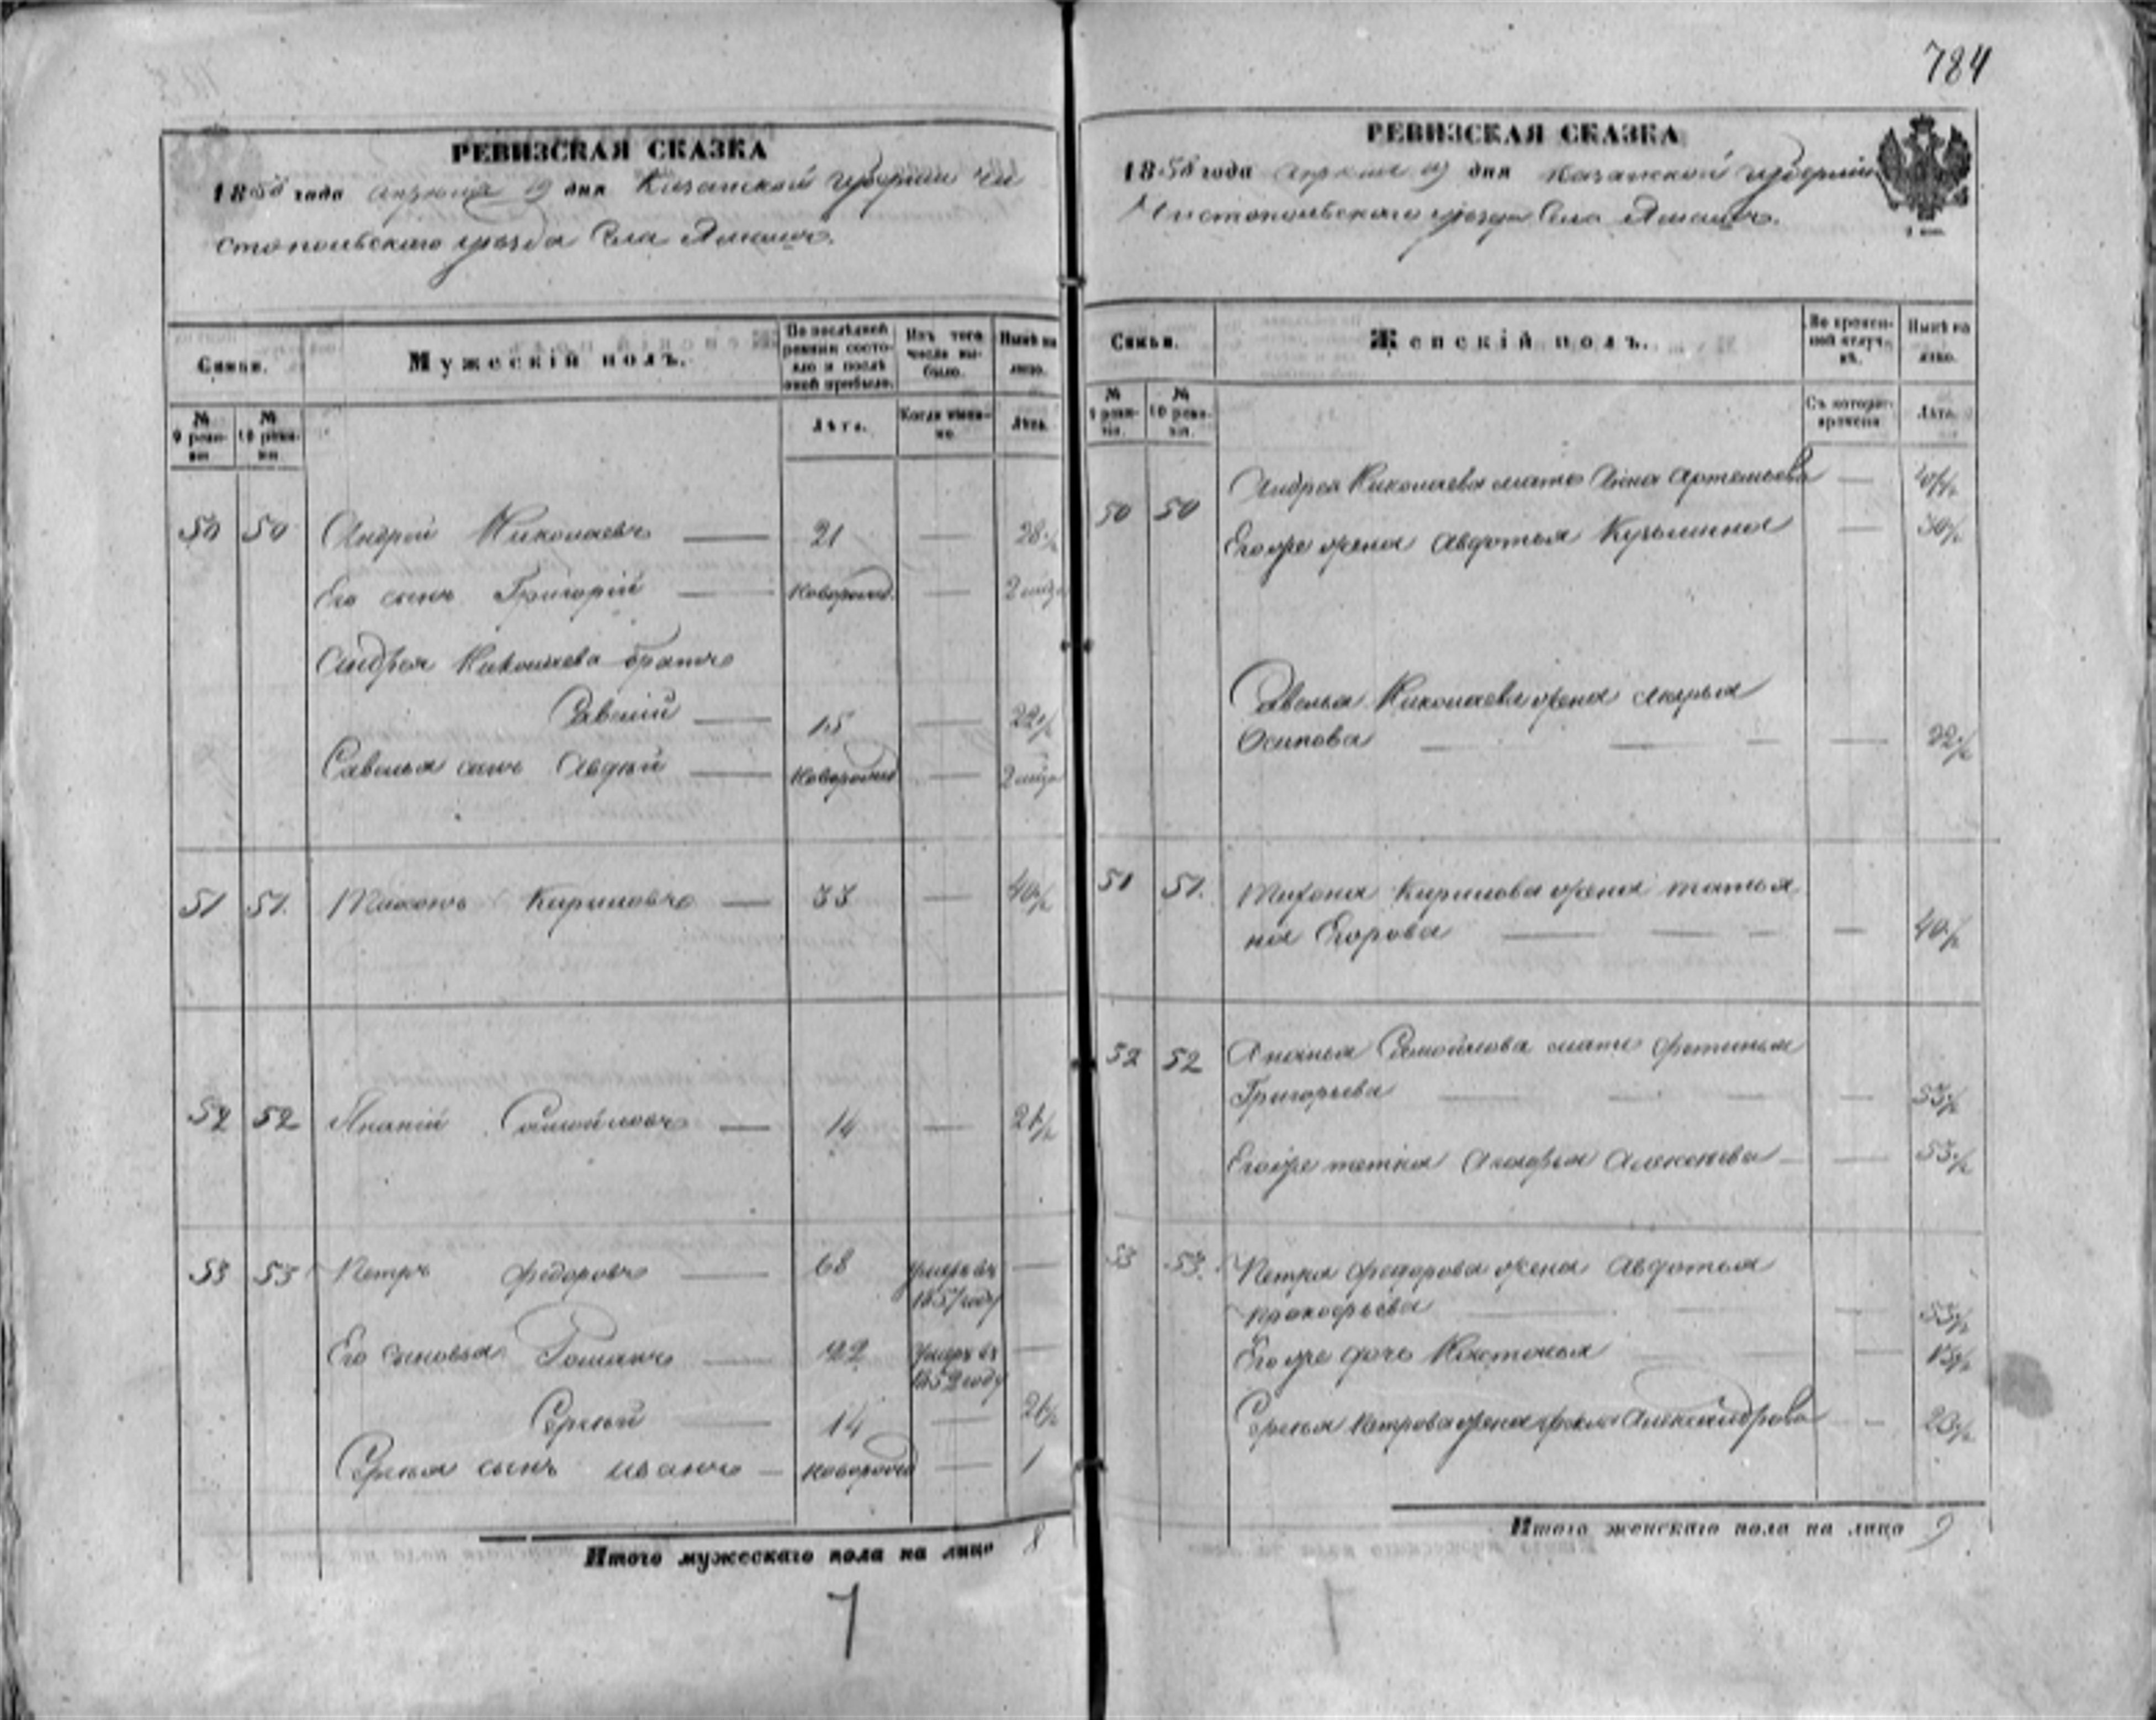 784
РЕВИЗСКАЯ СКАЗКА
1858 года апреля 19 дня Казанской губернии Чи
стопольскаго уезда Села
Семьи.
Мужескій полъ.
По послѣдней ревизіи состояло и послѣ оной прибыло.
Изъ того числа выбыло.
Нынѣ на лицо.
№ 9 ревизіи.
№ 10 ревизіи.
Лѣта.
Когда именно.
Лѣта.
50 50 Андрей Николаевъ — 21 — 28½
Его сынъ Григорій — новорожд. —
Андрея Николаева братъ
Савелій — 15 — 22½
Савелья сынъ Авдѣй — новорожд —
51 51. Тихонъ Кириловъ — 33 — 40½
52 52 Ананій Самойловъ — 14 — 21½
53 53 Петръ Федоровъ — 68 умеръ въ —
1857 году
Его сыновья Романъ — 22 умеръ въ —
1852 году
Сергѣй — 14 — 21½
Сергѣя сынъ Иванъ — новорожд — 1
Итого мужескаго пола на лицо 8
7
РЕВИЗСКАЯ СКАЗКА
1858 года апреля 19 дня Казанской губерніи
Чистопольскаго уезда Села
Семьи.
Женскій полъ.
Во временной отлучкѣ.
Нынѣ на лицо.
№ 9 ревизіи.
№ 10 ревизіи.
Съ котораго времени
Лѣта.
50 50 Андрея Николаева мать Анна Артемьева —
Его же жена Авдотья Кузьмина — 30½
Савелья Николаева жена Марья
Осипова — — — — 22½
51 51. Тихона Кирилова жена Татья
на Егорова — — — — 40½
52 52 Ананья Самойлова мать Фетинья
Григорьева — — — — 55½
Его же тетка Агафья Алексеева — — 53½
53 53. Петра Федорова жена Авдотья
Прокофьева — — — 55½
Его же дочь — —
Сергея Петрова жена Фекла Александрова — 23½
Итого женскаго пола на лицо 9